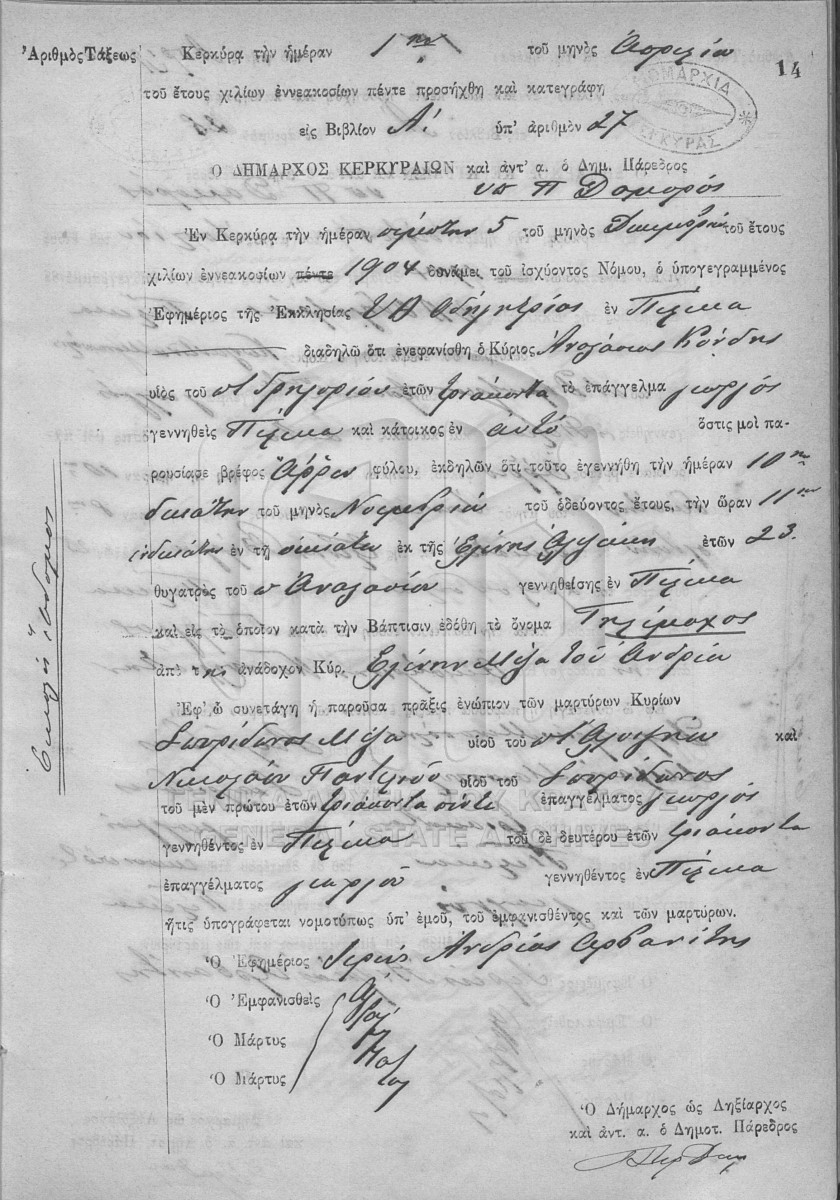 Ἀριθμὸς Τάξεως
Κερκύρᾳ τὴν ἡμέραν 1ην τοῦ μηνὸς Ἀπριλίου
14
ΝΟΜΑΡΧΙΑ ΚΕΡΚΥΡΑΣ
τοῦ ἔτους χιλίων ἐννεακοσίων πέντε προσήχθη καὶ κατεγράφη
εἰς Βιβλίον Α! ὑπ' ἀριθμὸν 27
Ο ΔΗΜΑΡΧΟΣ ΚΕΡΚΥΡΑΙΩΝ καὶ ἀντ' α. ὁ Δημ. Πάρεδρος
Ἐν Κερκύρᾳ τὴν ἡμέραν πέμπτην 5 τοῦ μηνὸς Δεκεμβρίου τοῦ ἔτους
χιλίων ἐννεακοσίων πέντε 1904 δυνάμει τοῦ ἰσχύοντος Νόμου, ὁ ὑπογεγραμμένος
Ἐφημέριος τῆς Ἐκκλησίας ΥΘ Οδηγητρίας ἐν Πέλεκα
διαδηλῶ ὅτι ἐνεφανίσθη ὁ Κύριος Αναστάσιος Κόνδης
υἱὸς τοῦ Γρηγορίου ἐτῶν τριάκοντα τὸ ἐπάγγελμα γεωργός
γεννηθεὶς Πέλεκα καὶ κάτοικος ἐν αὐτῷ ὅστις μοὶ πα-
ρουσίασε βρέφος Ἄρρεν φύλου, ἐκδηλῶν ὅτι τοῦτο ἐγεννήθη τὴν ἡμέραν 10ην
δεκάτην τοῦ μηνὸς Νοεμβρίου τοῦ ὁδεύοντος ἔτους, τὴν ὥραν 11ην
ἑνδεκάτην ἐν τῇ οἰκίᾳ του ἐκ τῆς Ἑλένης ἐτῶν 23.
θυγατρὸς τοῦ Αναστασίου γεννηθείσης ἐν Πέλεκα
καὶ εἰς τὸ ὁποῖον κατὰ τὴν Βάπτισιν ἐδόθη τὸ ὄνομα Τηλέμαχος
ἀπὸ την ἀνάδοχον Κύρ. Ελένην Μέξα τοῦ Ανδρέα
Ἐφ' ᾧ συνετάγη ἡ παροῦσα πρᾶξις ἐνώπιον τῶν μαρτύρων Κυρίων
Σπυρίδωνος Μέξα υἱοῦ τοῦ καὶ
Νικολάου υἱοῦ τοῦ Σπυρίδωνος
τοῦ μὲν πρώτου ἐτῶν τριάκοντα πέντε ἐπαγγέλματος γεωργός
γεννηθέντος ἐν Πέλεκα τοῦ δὲ δευτέρου ἐτῶν τριάκοντα
ἐπαγγέλματος γεωργοῦ γεννηθέντος ἐν Πέλεκα
ἥτις ὑπογράφεται νομοτύπως ὑπ' ἐμοῦ, τοῦ ἐμφανισθέντος καὶ τῶν μαρτύρων.
Ὁ Ἐφημέριος Ιερεύς Ανδρέας Αρβανίτης
Ὁ Ἐμφανισθεὶς
Ὁ Μάρτυς
Ὁ Μάρτυς
Ὁ Δήμαρχος ὡς Ληξίαρχος
καὶ ἀντ. α. ὁ Δημοτ. Πάρεδρος
ΓΕΝΙΚΑ ΑΡΧΕΙΑ ΤΟΥ ΚΡΑΤΟΥΣ
GENERAL STATE ARCHIVES